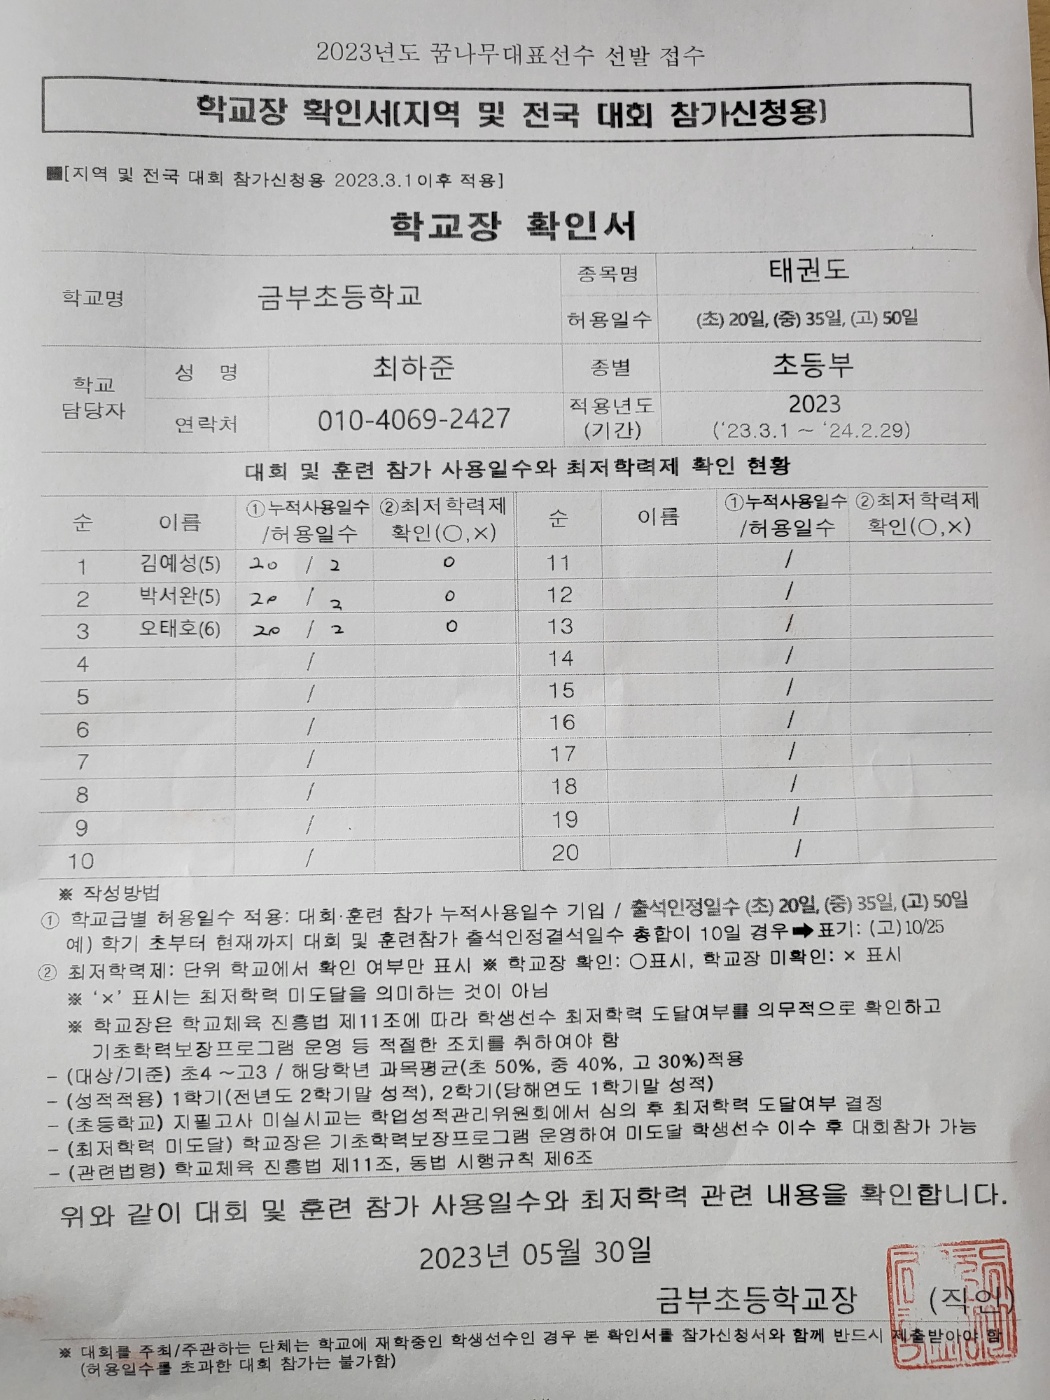 2023년도 꿈나무대표선수 선발 접수
학교장 확인서(지역 및 전국 대회 참가신청용)
■[지역 및 전국 대회 참가신청용 2023.3.1이후 적용]
학교장 확인서
학교명 금부초등학교 종목명 태권도
허용일수 (초) 20일, (중) 35일, (고) 50일
학교 담당자 성 명 최하준 종별 초등부
연락처 010-4069-2427 적용년도 (기간) 2023 ('23.3.1 ~ '24.2.29)
대회 및 훈련 참가 사용일수와 최저학력제 확인 현황
순 이름 ①누적사용일수 /허용일수 ②최저학력제 확인(○,×) 순 이름 ①누적사용일수 /허용일수 ②최저학력제 확인(○,×)
1 김예성(5) 20 / 2 0 11 /
2 박서완(5) 20 / 2 0 12 /
3 오태호(6) 20 / 2 0 13 /
4 / 14 /
5 / 15 /
6 / 16 /
7 / 17 /
8 / 18 /
9 / 19 /
10 / 20 /
※ 작성방법
① 학교급별 허용일수 적용: 대회·훈련 참가 누적사용일수 기입 / 출석인정일수 (초) 20일, (중) 35일, (고) 50일
예) 학기 초부터 현재까지 대회 및 훈련참가 출석인정결석일수 총합이 10일 경우➡표기: (고)10/25
② 최저학력제: 단위 학교에서 확인 여부만 표시 ※ 학교장 확인: ○표시, 학교장 미확인: × 표시
※ '×' 표시는 최저학력 미도달을 의미하는 것이 아님
※ 학교장은 학교체육 진흥법 제11조에 따라 학생선수 최저학력 도달여부를 의무적으로 확인하고
기초학력보장프로그램 운영 등 적절한 조치를 취하여야 함
- (대상/기준) 초4 ~고3 / 해당학년 과목평균(초 50%, 중 40%, 고 30%)적용
- (성적적용) 1학기(전년도 2학기말 성적), 2학기(당해연도 1학기말 성적)
- (초등학교) 지필고사 미실시교는 학업성적관리위원회에서 심의 후 최저학력 도달여부 결정
- (최저학력 미도달) 학교장은 기초학력보장프로그램 운영하여 미도달 학생선수 이수 후 대회참가 가능
- (관련법령) 학교체육 진흥법 제11조, 동법 시행규칙 제6조
위와 같이 대회 및 훈련 참가 사용일수와 최저학력 관련 내용을 확인합니다.
2023년 05월 30일
금부초등학교장 (직인)
※ 대회를 주최/주관하는 단체는 학교에 재학중인 학생선수인 경우 본 확인서를 참가신청서와 함께 반드시 제출받아야 함
(허용일수를 초과한 대회 참가는 불가함)